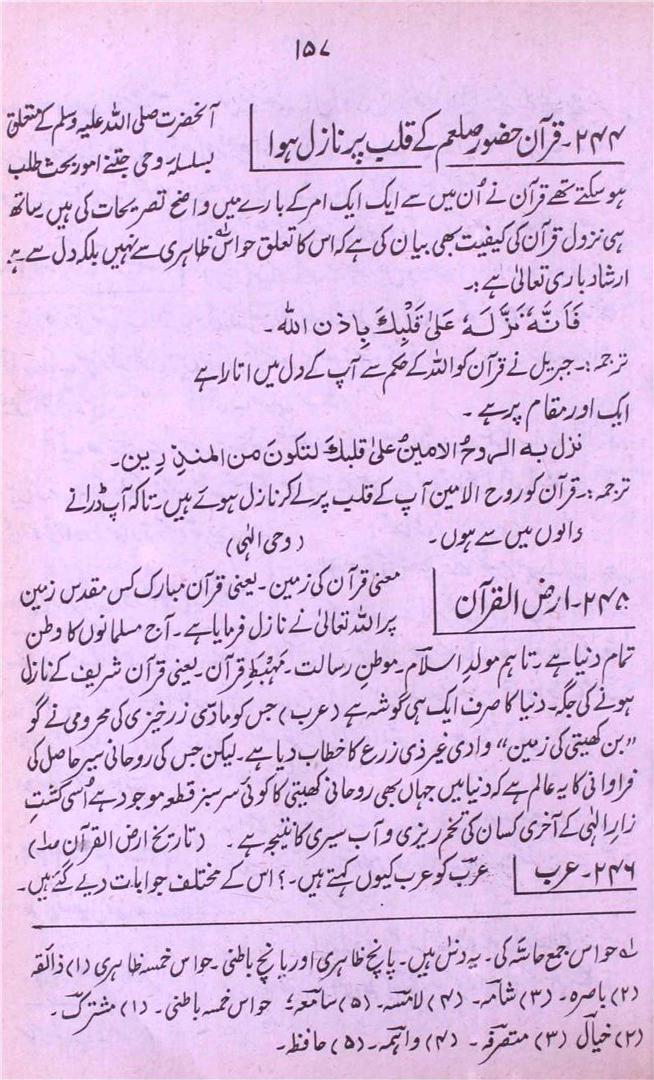 ۱۵۷
۲۴۴۔ قرآن حضور صلعم کے قلب پر نازل ہوا
آنحضرت صلی اللہ علیہ وسلم کے متعلق
بسلسلہ وحی جتنے امور بحث طلب
ہو سکتے تھے قرآن نے اُن میں سے ایک ایک امر کے بارے میں واضح تصریحات کی ہیں ساتھ
ہی نزول قرآن کی کیفیت بھی بیان کی ہے کہ اس کا تعلق حواس ظاہری سے نہیں بلکہ دل سے ہے
ارشاد باری تعالیٰ ہے :۔
فَاِنَّهٗ نَزَّلَهٗ عَلىٰ قَلْبِكَ بِاِذْنِ الله ۔
ترجمہ :۔ جبریل نے قرآن کو اللہ کے حکم سے آپ کے دل میں اتارا ہے
ایک اور مقام پر ہے ۔
نزل به الروحُ الامینُ علیٰ قلبكَ لتكونَ من المنذِرین۔
ترجمہ :۔ قرآن کو روح الامین آپ کے قلب پر لے کر نازل ہوئے ہیں۔ تاکہ آپ ڈرانے
والوں میں سے ہوں۔ (وحی الٰہی)
۲۴۵۔ ارض القرآن
معنی قرآن کی زمین۔ یعنی قرآن مبارک کس مقدس زمین
پر اللہ تعالیٰ نے نازل فرمایا ہے۔ آج مسلمانوں کا وطن
تمام دنیا ہے۔ تاہم مولدِ اسلام۔ موطنِ رسالت۔ مہبطِ قرآن۔ یعنی قرآن شریف کے نازل
ہونے کی جگہ۔ دنیا کا صرف ایک ہی گوشہ ہے (عرب) جس کو مادّی زرخیزی کی محرومی نے گو
"بن کھیتی کی زمین" وادی غیر ذی زرع کا خطاب دیا ہے۔ لیکن جس کی روحانی سیر حاصل کی
فراوانی کا یہ عالم ہے کہ دنیا میں جہاں بھی روحانی کھیتی کا کوئی سرسبز قطعہ موجود ہے اُسی کشتِ
زارِ الٰہی کے آخری کسان کی تخم ریزی و آب سیری کا نتیجہ ہے ۔ (تاریخ ارض القرآن
۲۴۶۔ عرب
عرب کو عرب کیوں کہتے ہیں۔ ؟ اس کے مختلف جوابات دیے گئے ہیں۔
لے حواس جمع حاسّہ کی۔ یہ دس ہیں۔ پانچ ظاہری اور پانچ باطنی۔ حواس خمسہ ظاہری (۱) ذائقہ
(۲) باصرہ۔ (۳) شامّہ۔ (۴) لامسہ۔ (۵) سامعہ؛ حواس خمسہ باطنی۔ (۱) مشترک ۔
(۲) خیال (۳) متصرفہ ۔ (۴) واہمہ۔ (۵) حافظہ۔